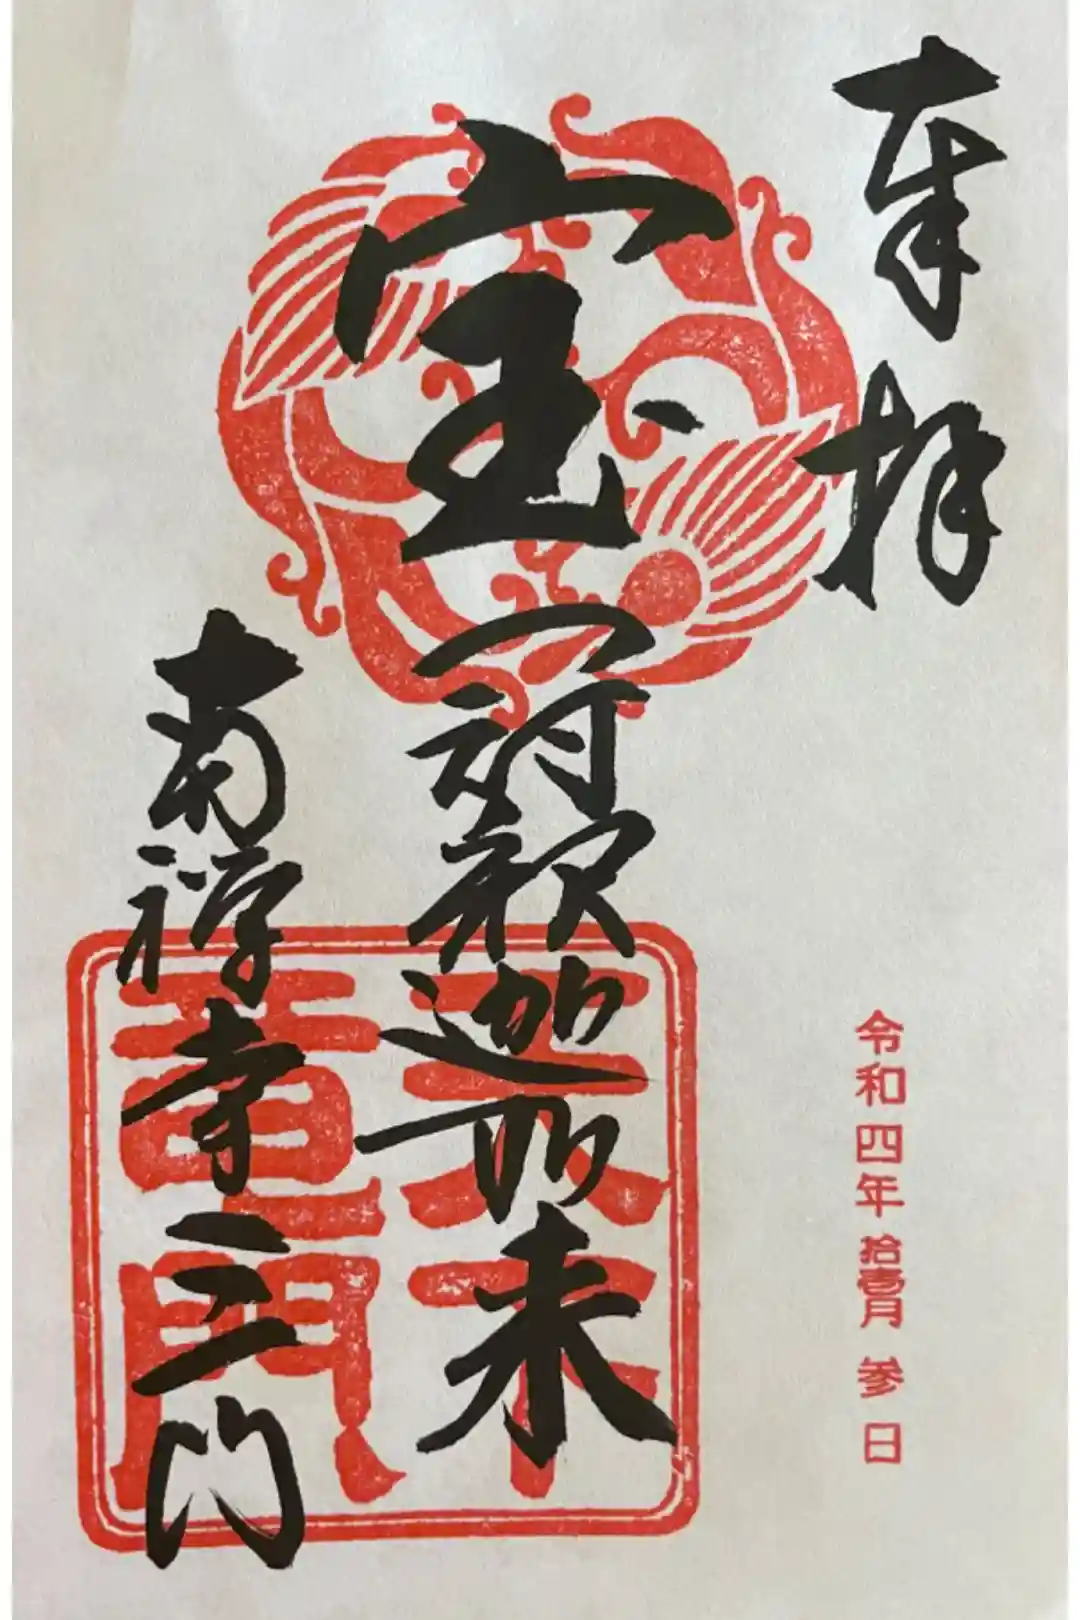 奉拝
宝冠釈迦如来
南禅寺三門
天下
竜門
令和四年拾壹月参日